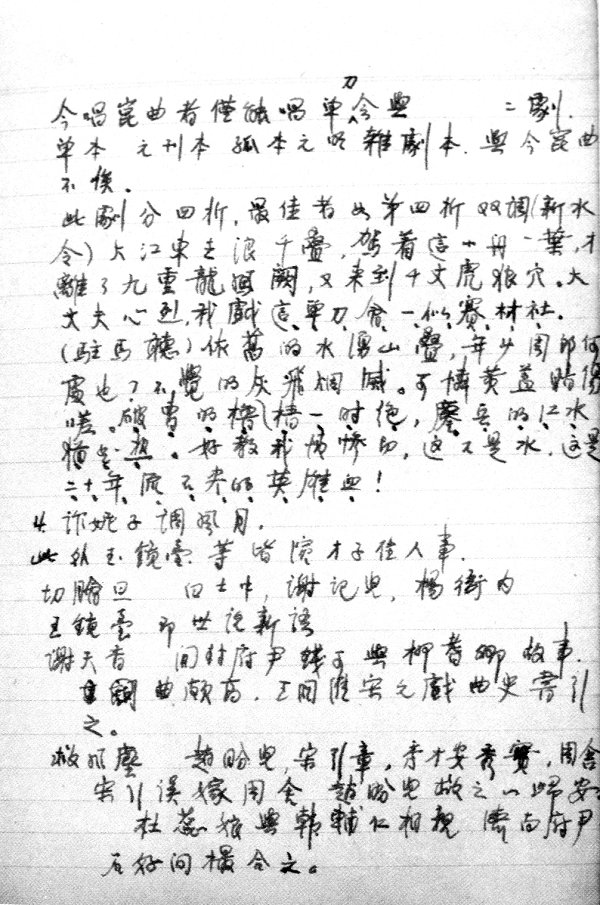 刀
今唱崑曲者僅能唱單会與 二劇.
单本 元刊本 孤本元明雜劇本. 與今崑曲
不悞。
此劇分四折,最佳者为第四折双调(新水
令)大江東去浪千疊,駕着這小舟一葉,才
離了九重龍鳳闕,又来到千丈虎狼穴。大
丈夫心烈,我戲這單刀會一似賽村社.
(駐馬聽)依舊的水湧山疊,年少周郎何
處也?不覺的灰飛烟滅。可憐黄盖暗傷
嗟。破曹的檣櫓一时绝,鏖兵的江水
猶然热。好教我情惨切,这不是水,这是
二十年流不尽的英雄血!
4. 詐妮子调風月.
此外玉鏡臺等皆演才子佳人事.
切膾旦 白士中,谢记兒,楊衙内
玉鏡臺 即世说新語
谢天香 開封府尹钱可與柳耆卿故事.
曲颇高.王国维宋元戲曲史嘗引
之。
救風塵 趙盼兒,宋引章,秀才安秀實,周舍
宋引误嫁周舍 趙盼兒救之以歸安
杜蕊娘與韓輔仁相親 濟南府尹
石好问撮合之。